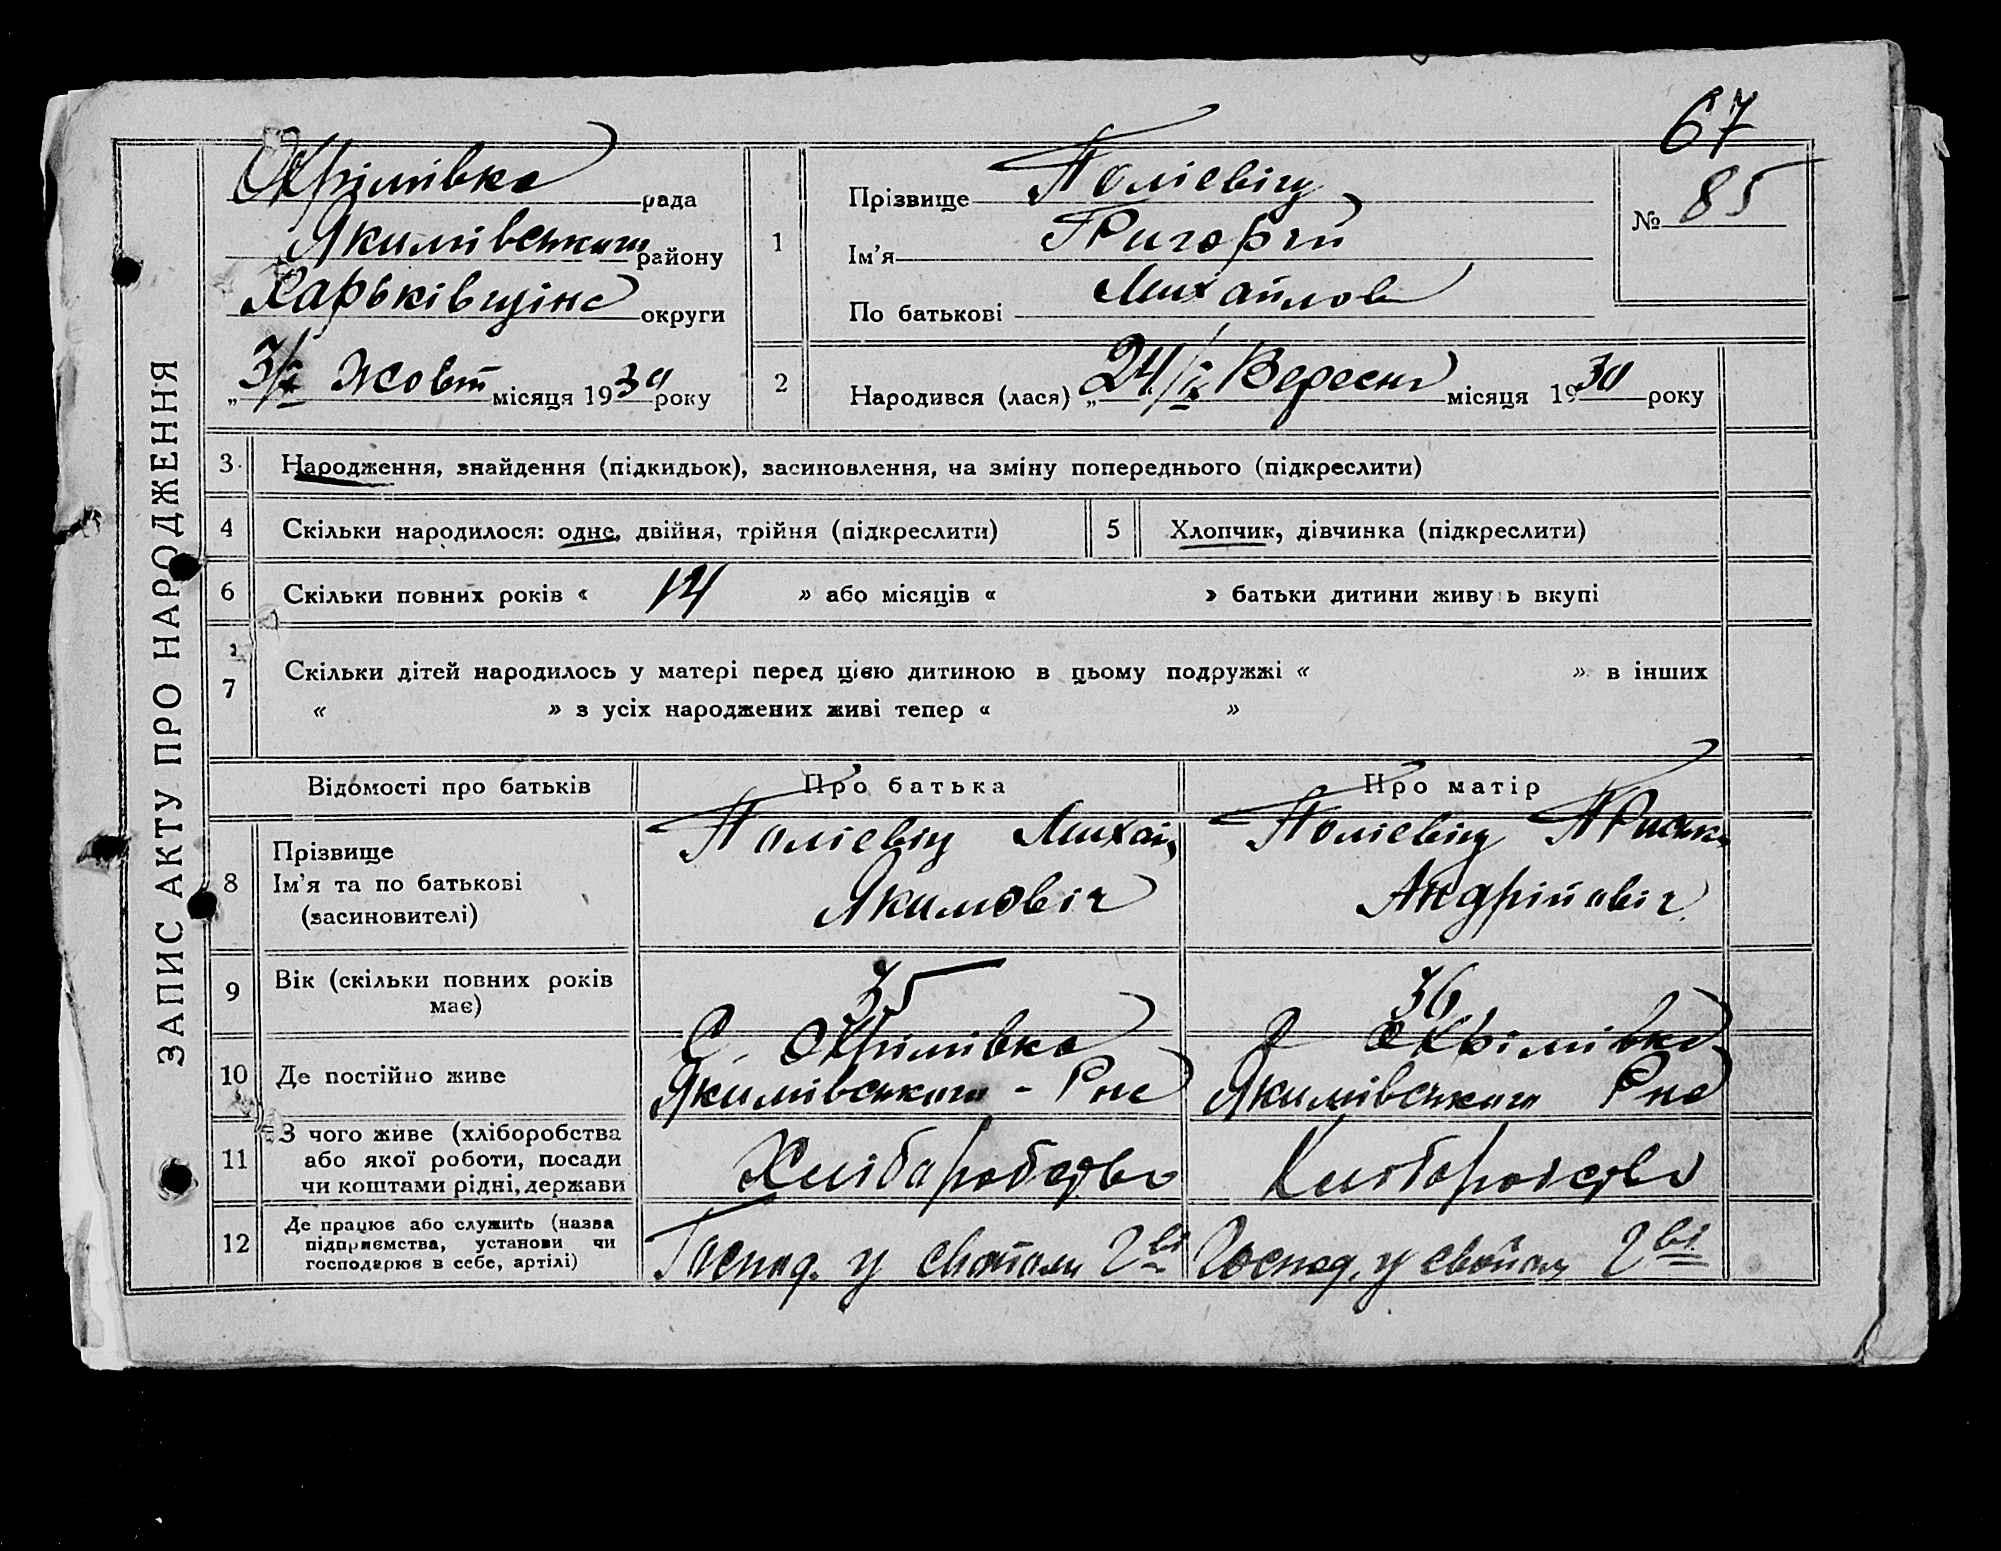 67
Охрімівка рада
Якимівського району
Харьківщіна округи
„3/X Жовт місяця 1930 року
1
Прізвище Полієвіц
Ім'я Григорій
По батькові Михайлов
№ 85
2
Народився (лася) „24/IX Вересня місяця 1930 року
ЗАПИС АКТУ ПРО НАРОДЖЕННЯ
3 Народження, знайдення (підкидьок), засиновлення, на зміну попереднього (підкреслити)
4 Скільки народилося: одне, двійня, трійня (підкреслити) 5 Хлопчик, дівчинка (підкреслити)
6 Скільки повних років « 14 » або місяців « » батьки дитини живуть вкупі
7 Скільки дітей народилось у матері перед цією дитиною в цьому подружжі « » в інших
« » з усіх народжених живі тепер « »
Відомості про батьків Про батька Про матір
8
Прізвище
Ім'я та по батькові
(засиновителі)
Полієвіц Михай
Якимовіч
Полієвіц
Андрійовіч
9 Вік (скільки повних років
має)
35
36
10 Де постійно живе
С. Охрімівка
Якимівського - Рна
С Охрімівка
Якимівського Рна
11
З чого живе (хліборобства
або якої роботи, посади
чи коштами рідні, держави
Хліборобство
Хліборобство
12
Де працює або служить (назва
підприємства, установи чи
господарює в себе, артілі)
Господ. у свойом г-ві
Господ. у свойом г-ві